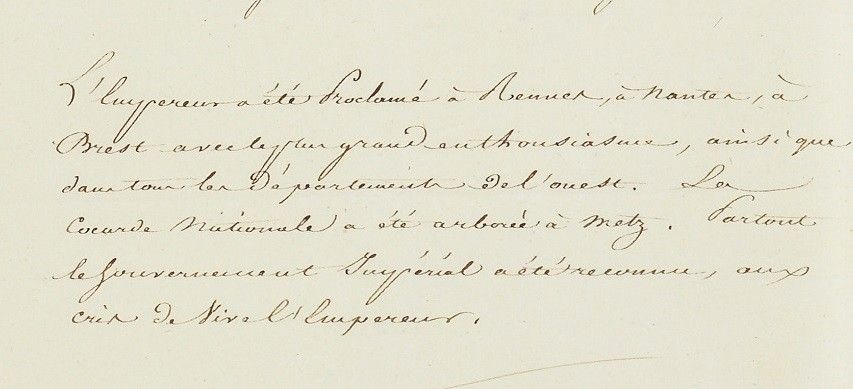 L'Empereur a été Proclamé à Rennes, à Nantes, à
Brest avec le plus grand enthousiasme, ainsi que
dans tous les Départements de l'ouest. La
Cocarde Nationale a été arborée à Metz. Partout
le Gouvernement Impérial a été reconnu, aux
cris de Vive l'Empereur.